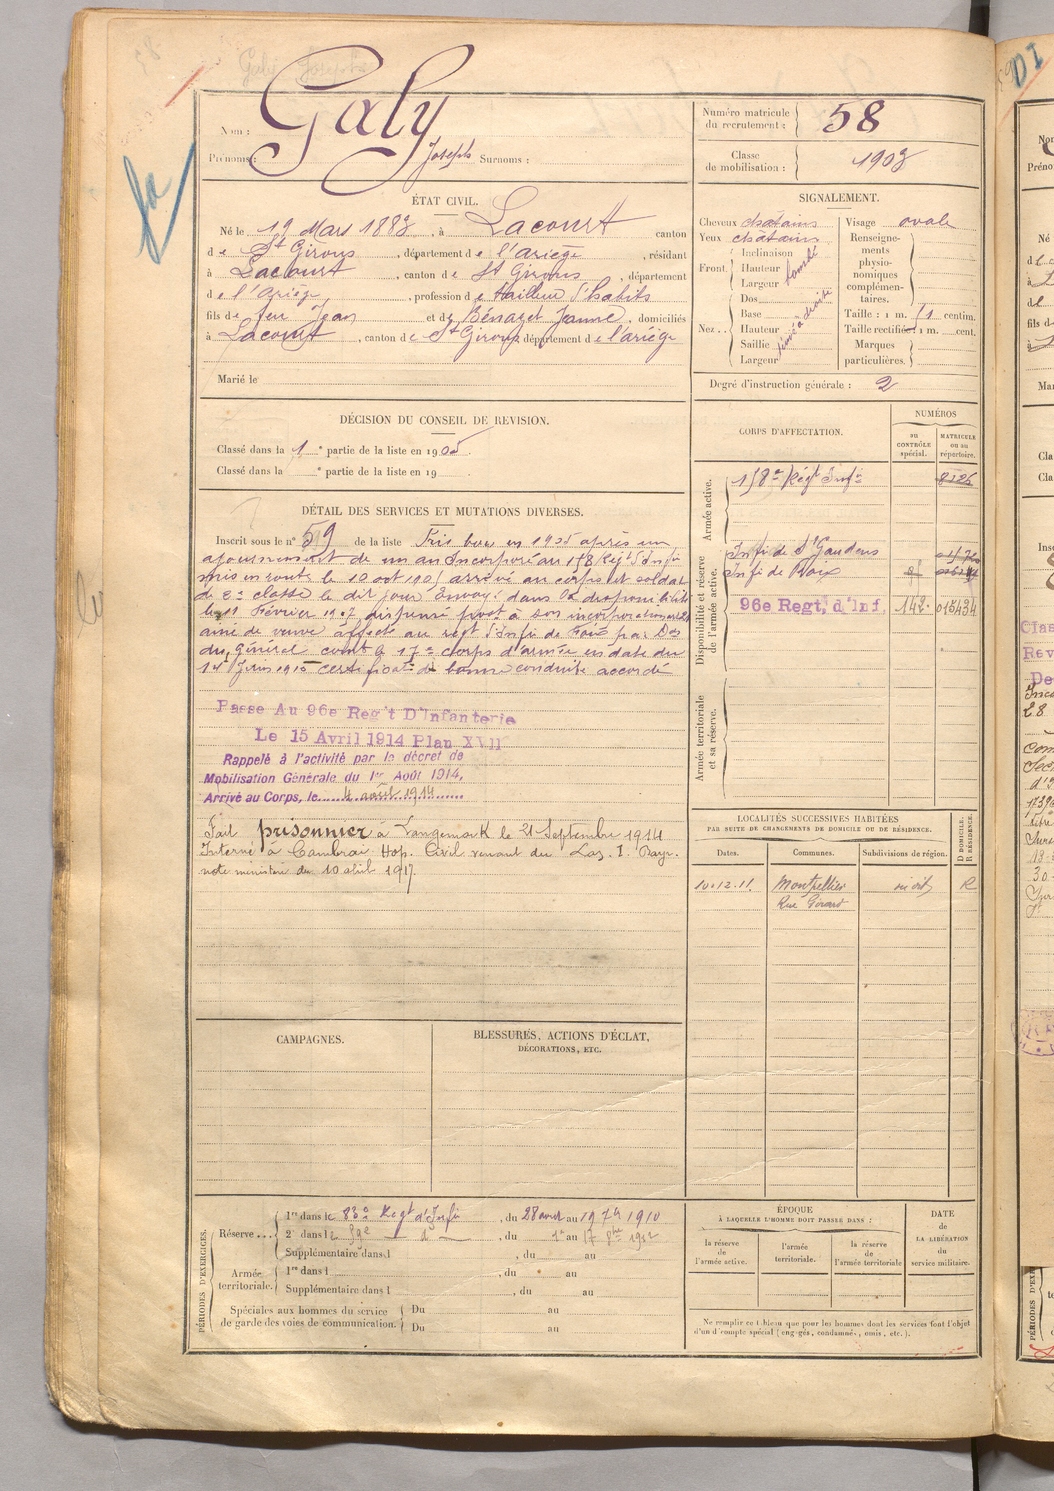 Galy
Nom :
Prénoms : Joseph Surnoms :
Numéro matricule
du recrutement : 58
Classe
de mobilisation : 1903
ÉTAT CIVIL.
Né le 19 Mars 1883, à Lacourt canton
de St Girons, département de l'ariège, résidant
à Lacourt, canton de St Girons, département
de l'Ariège, profession de tailleur d'habits
fils de feu Jean et de Bénazet Jeanne, domiciliés
à Lacourt, canton de St Girons, département de l'ariège
Marié le
SIGNALEMENT.
Cheveux chatains
Yeux chatains
Front. Inclinaison
Hauteur bombé
Largeur
Nez. Dos
Base
Hauteur
Saillie
Largeur
Visage ovale
Renseigne-
ments
physio-
nomiques
complémen-
taires.
Taille : 1 m. centim.
Taille rectifiée 1 m. cent.
Marques
particulières.
Degré d'instruction générale : 2
DÉCISION DU CONSEIL DE REVISION.
Classé dans la 1e partie de la liste en 1905
Classé dans la e partie de la liste en 19
DÉTAIL DES SERVICES ET MUTATIONS DIVERSES.
Inscrit sous le n° 59 de la liste Pris bon en 1905 après un
ajournement de un an Incorporé au Regt d'Infie
mis en route le 10 oct 1905 arrivé au corps et soldat
de 2e classe le dit jour Envoyé dans la disponibilité
le Février 1907 dispensé à son incorporation
ainé de veuve affecté au regt d'Infie de Foix par Don
du Général comt le 17e corps d'armée en date du
1er Juin certificat de bonne conduite accordé
Passe Au 96e Reg't D'Infanterie
Le 15 Avril 1914 Plan XVII
Rappelé à l'activité par le décret de
Mobilisation Générale du 1er Août 1914,
Arrivé au Corps, le 4 août 1914
Fait prisonnier à Langemark le 21 Septembre 1914
Interné à Cambrai Hop. Civil venant du Laz. I. Bayr.
note ministère du 10 avril 1917.
CORPS D'AFFECTATION.
NUMÉROS
au
CONTRÔLE
spécial.
MATRICULE
ou au
répertoire.
Armée active.
Régt Infie
Disponibilité et réserve
de l'armée active.
Infie de St Gaudens
Infie de Foix
96e Regt, d'Inf. 142 015434
Armée territoriale
et sa réserve.
LOCALITÉS SUCCESSIVES HABITÉES
PAR SUITE DE CHANGEMENTS DE DOMICILE OU DE RÉSIDENCE.
D DOMICILE.
R RÉSIDENCE.
Dates. Communes. Subdivisions de région.
10.12.11. Montpellier R
Rue Girard
CAMPAGNES.
BLESSURES, ACTIONS D'ÉCLAT,
DÉCORATIONS, ETC.
PÉRIODES D'EXERCICES.
Réserve... 1re dans le 83e Regt d'Infie, du 28 aout au 19 7bre 1910
2e dans le 59e d°, du 1er au 17 1912
Supplémentaire dans l , du au
Armée
territoriale. 1re dans l , du au
Supplémentaire dans l , du au
Spéciales aux hommes du service
de garde des voies de communication. Du au
Du au
ÉPOQUE
À LAQUELLE L'HOMME DOIT PASSER DANS :
la réserve
de
l'armée active.
l'armée
territoriale.
la réserve
de
l'armée territoriale
DATE
de
LA LIBÉRATION
du
service militaire.
Ne remplir ce tableau que pour les hommes dont les services font l'objet
d'un décompte spécial (engagés, condamnés, omis, etc.).